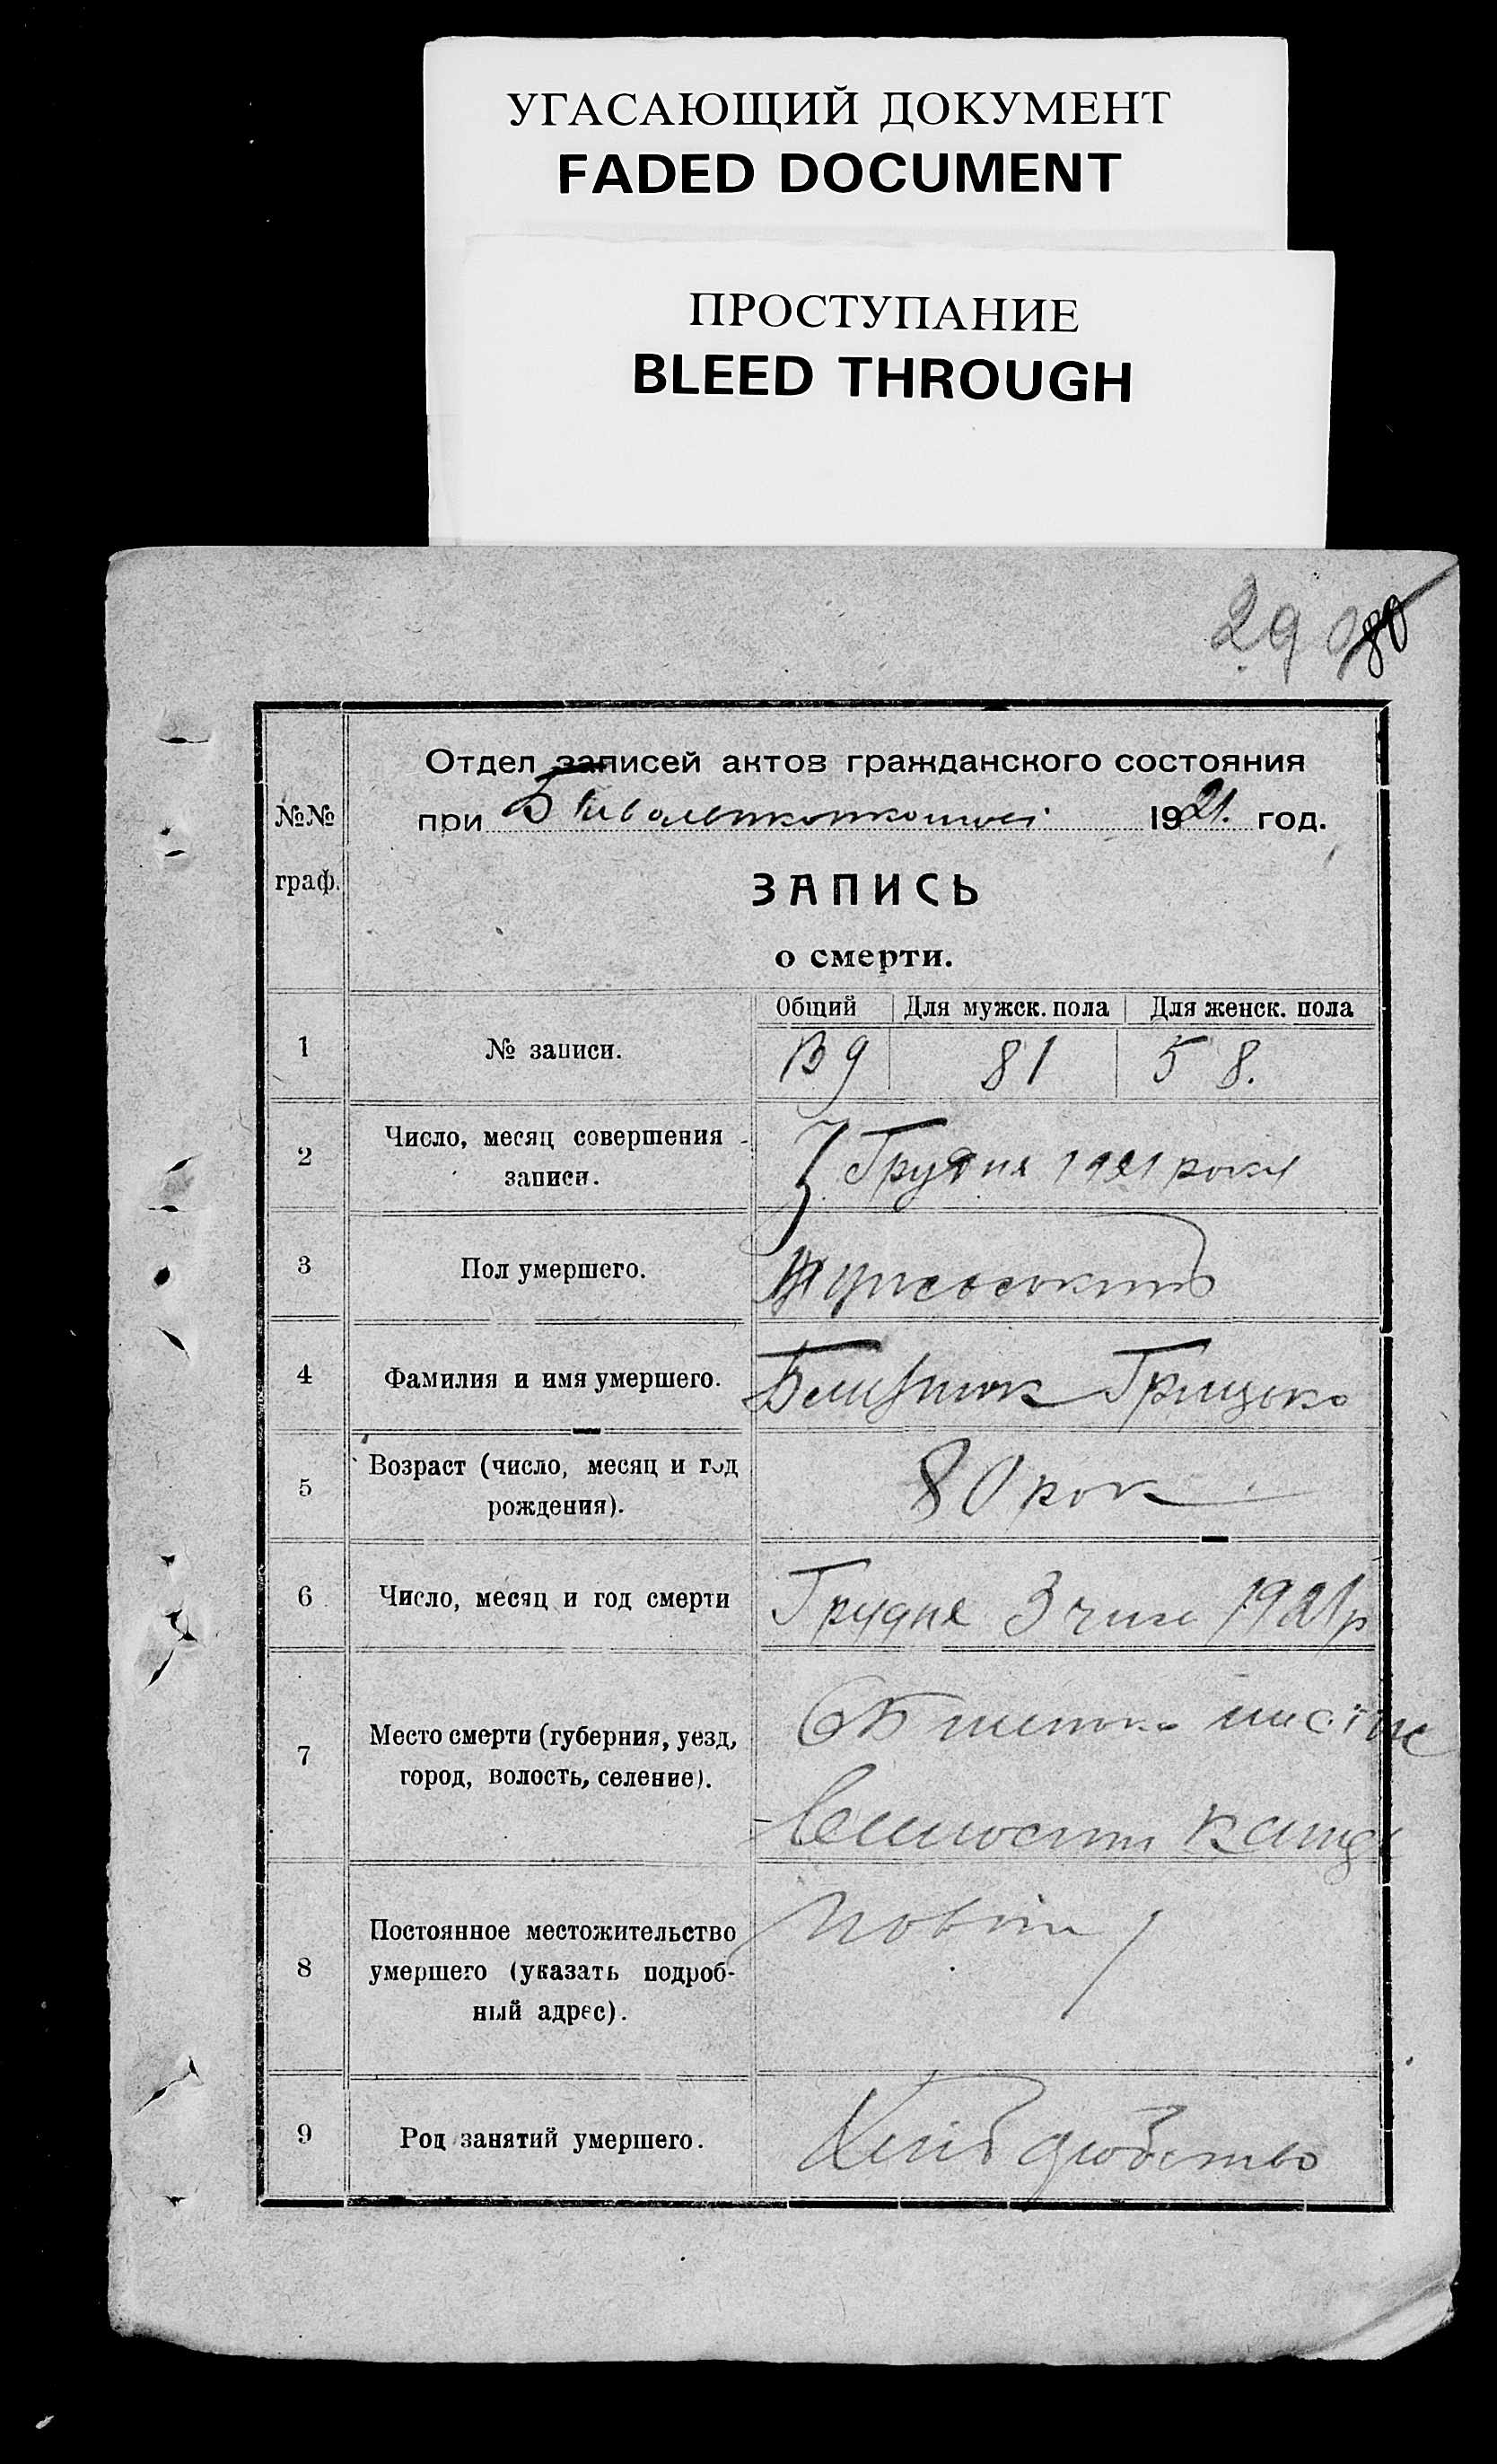 УГАСАЮЩИЙ ДОКУМЕНТ
FADED DOCUMENT
ПРОСТУПАНИЕ
BLEED THROUGH
29 80
Отдел записей актов гражданского состояния
при 1921. год.
№№
граф.
ЗАПИСЬ
о смерти.
Общий Для мужск. пола Для женск. пола
1 № записи. 139 81 58.
2 Число, месяц совершения
записи.
3 Грудня 1921 року
3 Пол умершего.
4 Фамилия и имя умершего. Грицько
5 Возраст (число, месяц и год
рождения).
80 рок
6 Число, месяц и год смерти Грудня 3 чис 1921 р
7 Место смерти (губерния, уезд,
город, волость, селение).
8 Постоянное местожительство
умершего (указать подроб-
ный адрес).
9 Род занятий умершего.